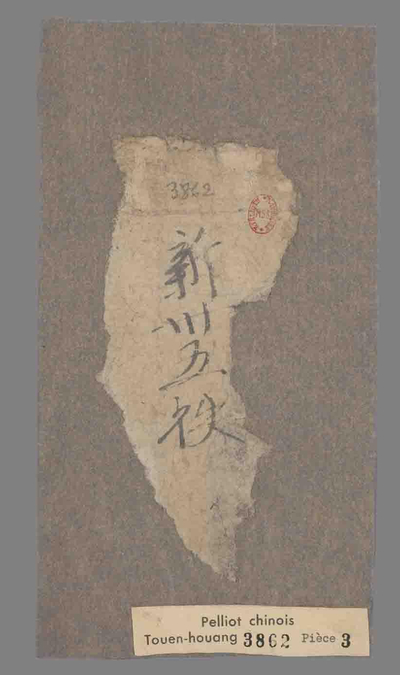 3862
新
卅
五
袟
Pelliot chinois
Touen-houang 3862 Pièce 3